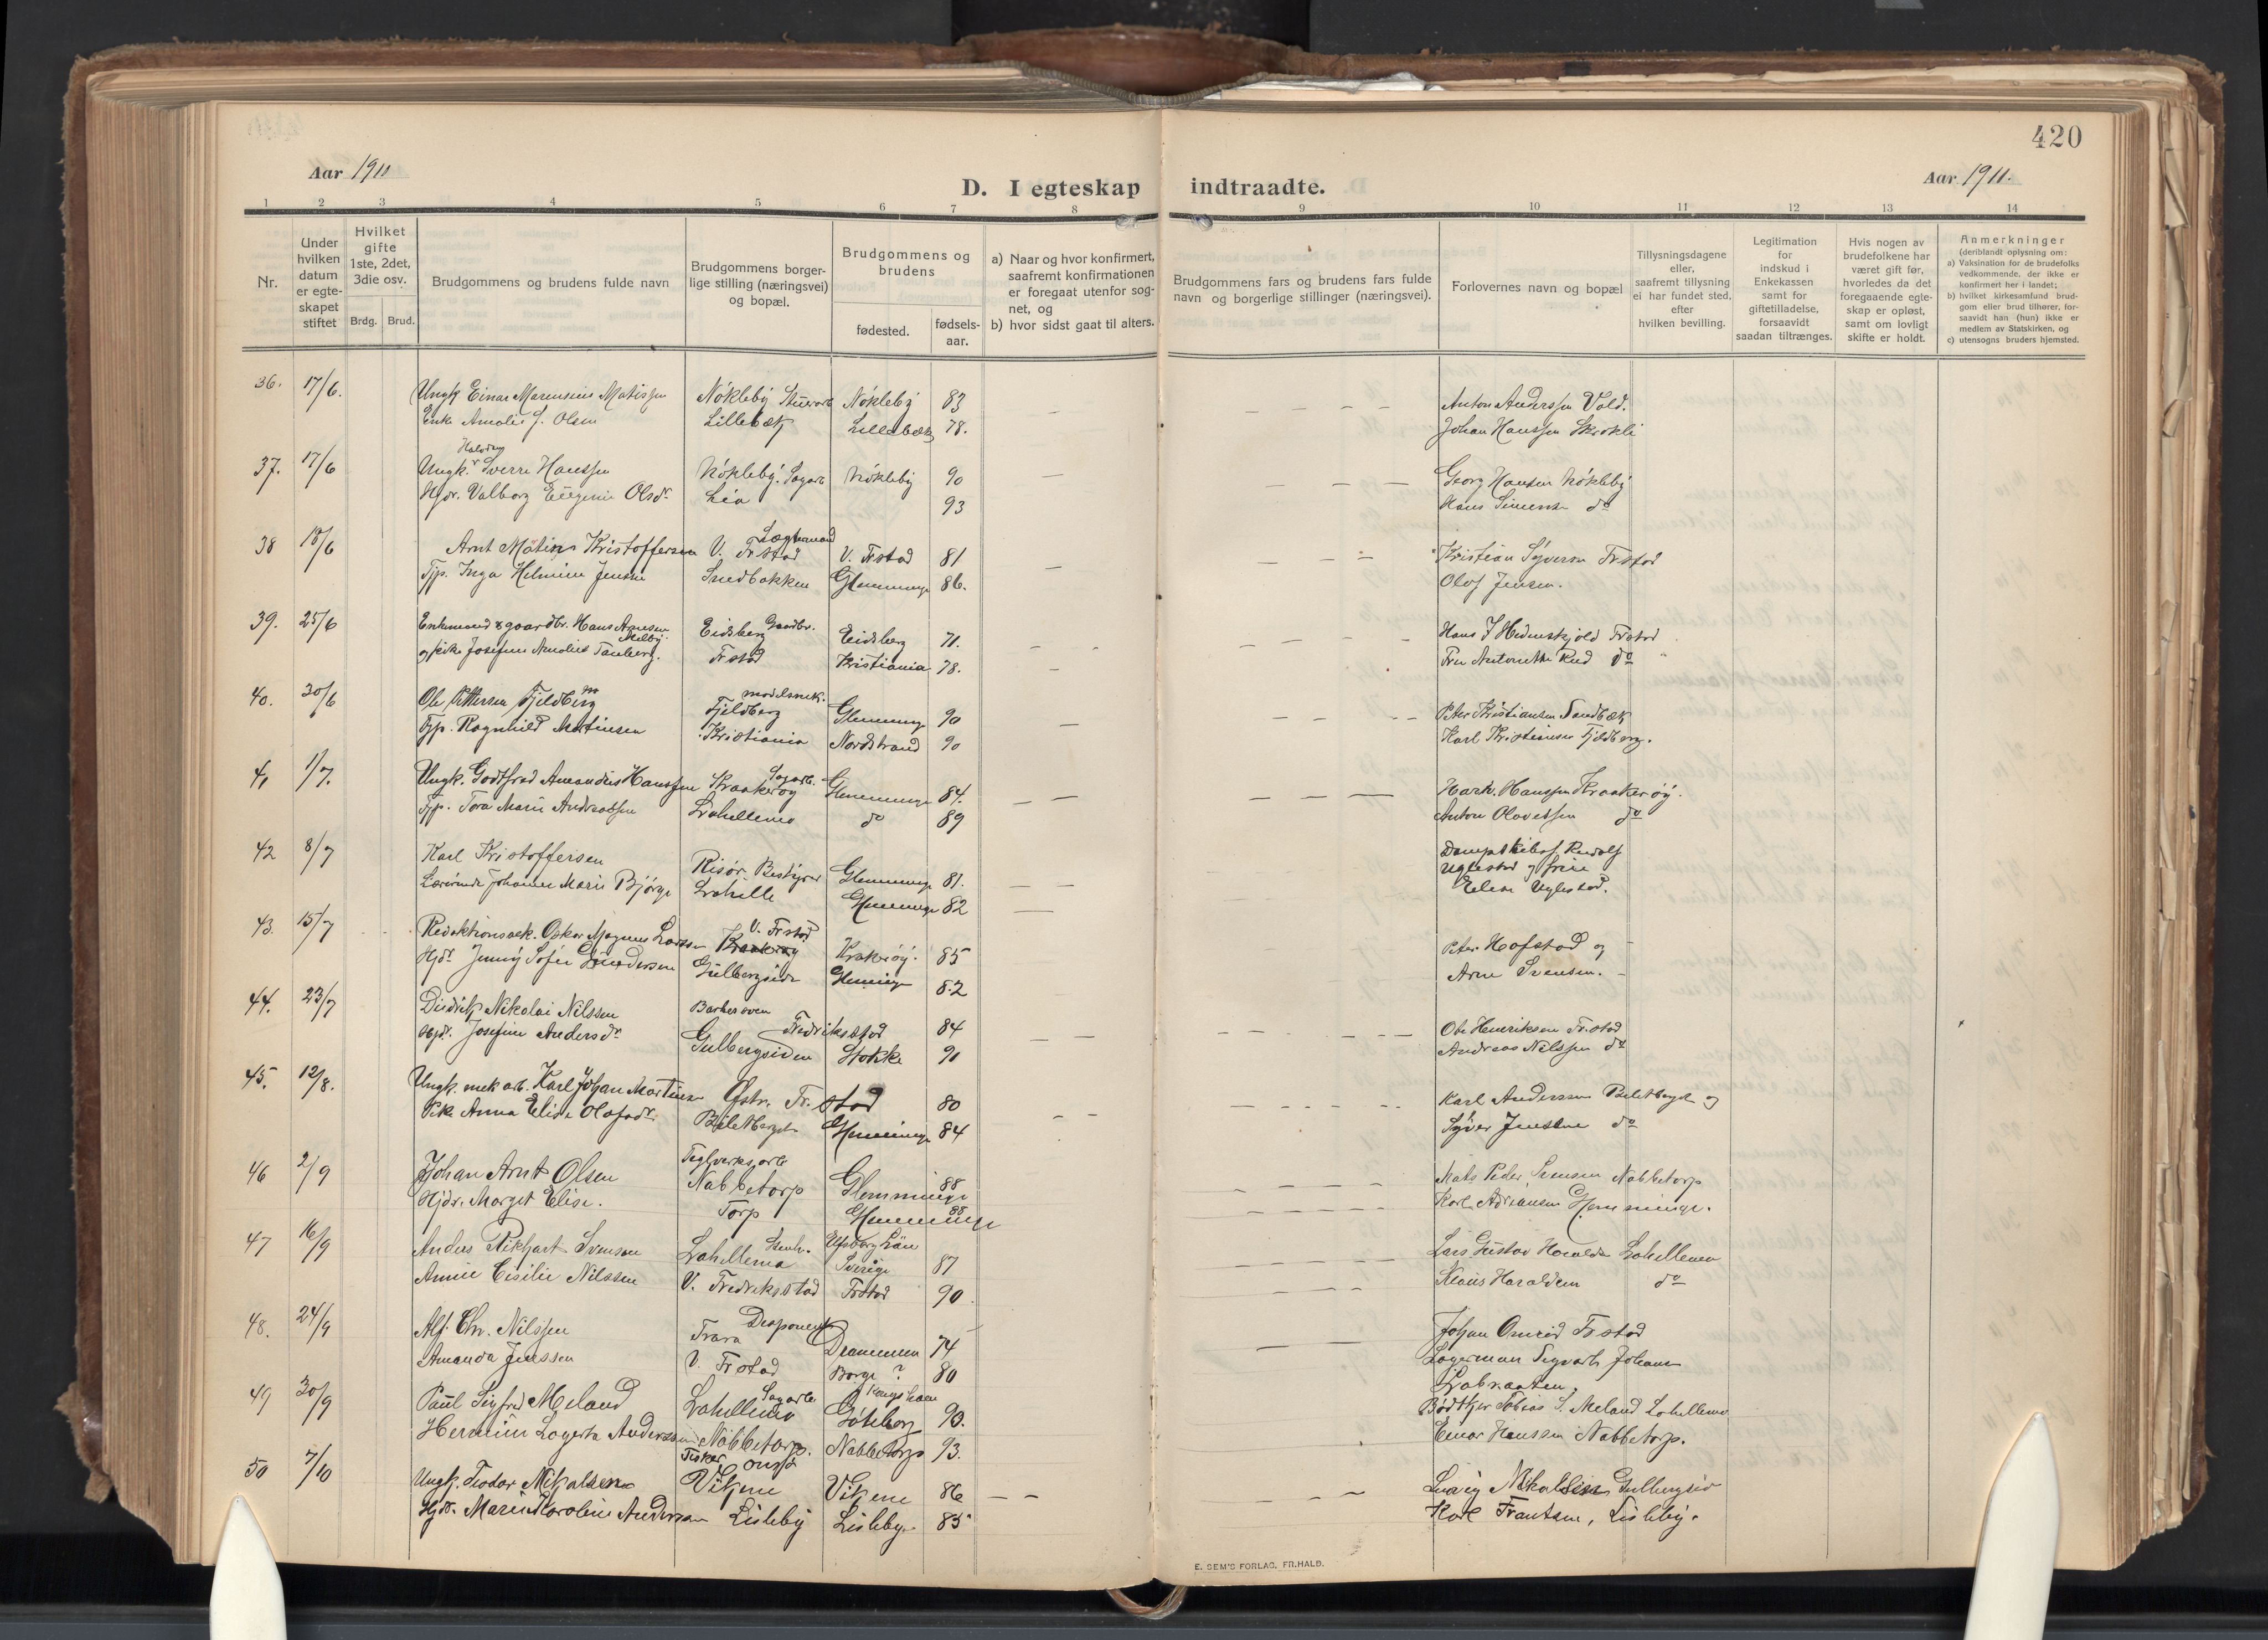 420
Aar 1911
D. I egteskap indtraadte.
Aar 1911.
1 2 3 4 5 6 7 8 9 10 11 12 13 14
Nr.
Under hvilken datum er egteskapet stiftet
Hvilket gifte 1ste, 2det, 3die osv.
Brdg. Brud.
Brudgommens og brudens fulde navn
Brudgommens borgerlige stilling (næringsvei) og bopæl.
Brudgommens og brudens
fødested.
fødselsaar.
a) Naar og hvor konfirmert, saafremt konfirmationen er foregaat utenfor sognet, og
b) hvor sidst gaat til alters.
Brudgommens fars og brudens fars fulde navn og borgerlige stillinger (næringsvei).
Forlovernes navn og bopæl
Tillysningsdagene eller, saafremt tillysning ei har fundet sted, efter hvilken bevilling.
Legitimation for indskud i Enkekassen samt for giftetilladelse, forsaavidt saadan tiltrænges.
Hvis nogen av brudefolkene har været gift før, hvorledes da det foregaaende egteskap er opløst, samt om lovligt skifte er holdt.
Anmerkninger
(deriblandt oplysning om:
a) Vaksination for de brudefolks vedkommende, der ikke er konfirmert her i landet;
b) hvilket kirkesamfund brudgom eller brud tilhører, forsaavidt han (hun) ikke er medlem av Statskirken, og
c) utensogns bruders hjemsted.
36. 17/6. Ungk. Einar Marensius Matissen Nókleby Nókleby 83 Anton Anderssen Vold.
Enke Amalie J. Olsen Lillebæk Lillebæk 78. Johan Hanssen
Halvdan
37. 17/6 Ungk. Sverre Hanssen Nókleby. Sagarb Nókleby 90 Georg Hansen Nókleby
Hjdr. Valborg Eugenie Olsdr. Lia 93 Hans Simensen do
38 18/6 Arnt Matins Kristoffersen V. Frstad V. Frstad 81 Kristian Syversen Frstad
Tjp. Inga Helmine Jensen Smedbakken Glemminge 86. Olof Jensen.
39. 25/6 Enkemand & gaardbr. Hans Arnesen Eidsberg Gaardbr. Eidsberg 71. Hans J Hedenskjold Frstad
og pike Josefine Amalie Tanberg. Frstad Kristiania 78. Fru Antonette Rud do
40. 30/6 Ole Pettersen Fjeldberg modelsnek. Fjeldberg Glemminge 90 Peter Kristiansen Sandbæk
Tjp. Ragnhild Martinsen Kristiania Nordstrand 90 Karl Kristiansen Fjeldberg.
41 1/7. Ungk. Godtfred Amandus Hanssen Sagarb. Kraakerøy Glemminge 84. Hanssen Kraakerøy.
Tjp. Tora Marie Andreassen Lahellemo do 89 Anton Olavessen do
42 8/7 Karl Kristoffersen Risør. Bestyrer Glemminge 81. Dampskibsf. Rudolf
Lærerinde Johanne Marie Bjørge Lahelle Glemminge 82 Uglestad og frue
Elise Uglestad.
43. 15/7 Redaktionssek. Oskar Magnus Larsen V. Frstad Krakerøy. 85 Peter Hofstad og
Hjdr. Jenny Sofie Gundersen Gulbergsiden Glemminge 82 Arne Svensen.
44. 23/7 Diedrik Nikolai Nilssen Barbersven Fredriksstad 84 Ole Henriksen Fr.stad
Hjdr. Josefine Andersdr. Gulbergsiden Stokke 91 Andreas Nilssen do
45. 12/8. Ungk. mek arb. Karl Johan Martinsen Østr. Fr.stad 80 Karl Andersen og
Pike Anna Elise Olafsdr. Glemminge 84 Syver Jensen do
46 2/9 Johan Arnt Olsen Teglverksarb Nabbetorp Glemminge 88 Mats Peder Svensen Nabbetorp
Hjdr. Margit Elise. Torp Glemminge 88 Karl Adriansen Glemminge.
47 16/9 Anders Rikhart Svensen Stenh. Lahellemo Elfsborg Län Sverige 87 Lars Gustav Haralds Lahellemo
Annie Cisilie Nilssen V. Fredriksstad Frstad 90 Klaus Haraldsen do
48. 24/9 Alf. Chr. Nilssen Disponent Trara Drammen 74 Johan Frstad
Amanda Jenssen V. Frstad Borge? 80 Lagerman Sigvart Johansen
Labraaten.
49 30/9 Paul Sigfred Meland Sagarb Lahellemo Göteborg 90. Bødtker Tobias S. Meland Lahellemo
Hermine Lagerta Anderssen Nabbetorp. Nabbetorp 93. Einar Hanssen Nabbetorp.
50 7/10 Ungk. Teodor Nikolaisen Fisker Onsø Vikene Vikene 86 Ludvig Nikolaisen Gulbergsid
Hjdr. Marie Karoline Andersen Lisleby Lisleby. 85 Karl Frantsen, Lisleby.
E. SEM'S FORLAG, FR.HALD.